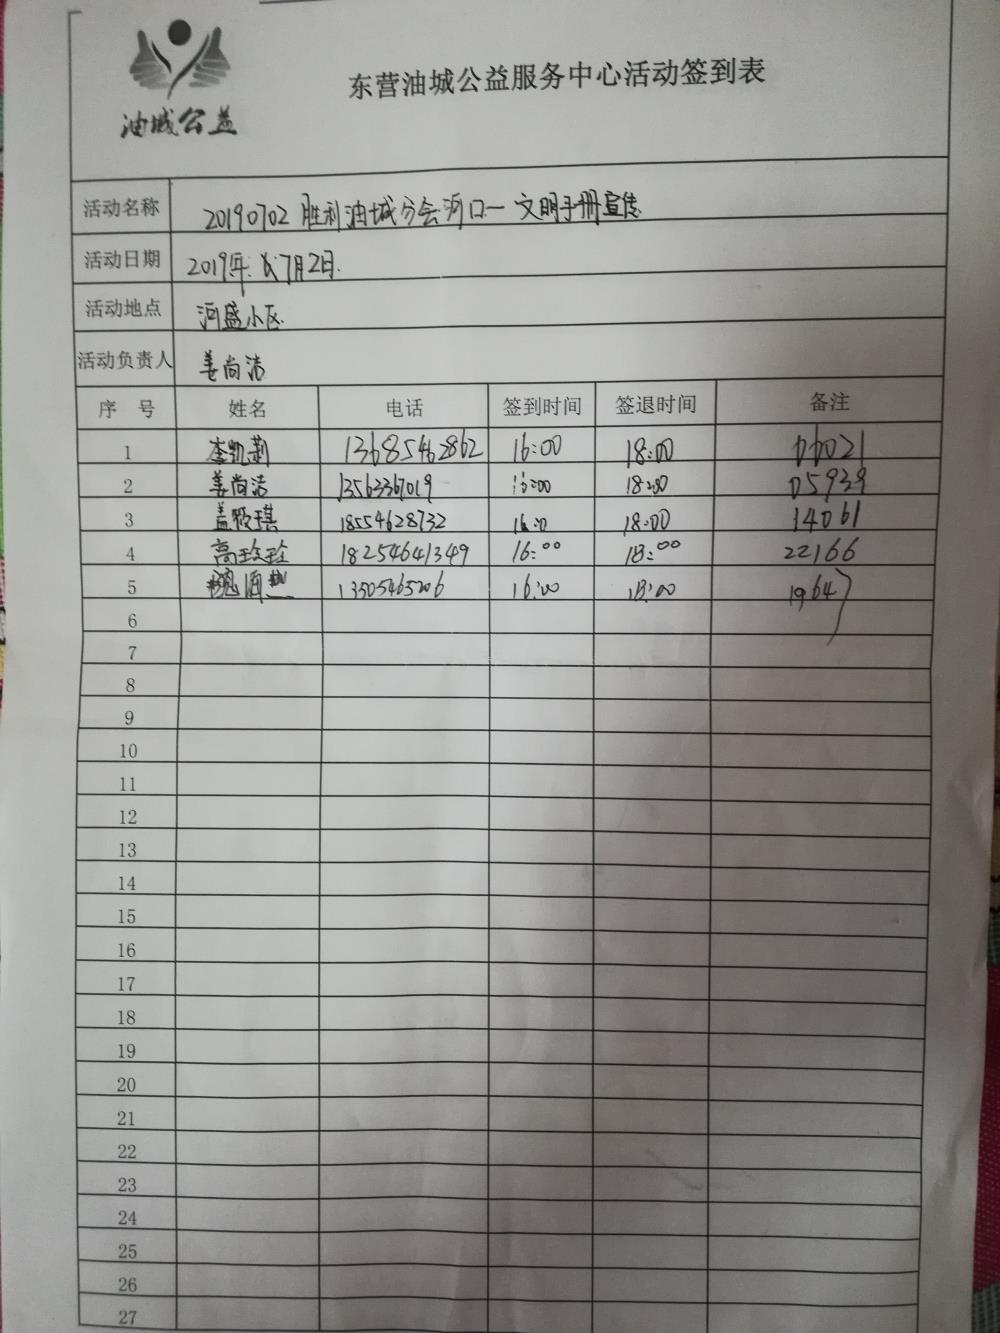 油城公益
东营油城公益服务中心活动签到表
活动名称 20190702 胜利油城分会河口一文明手册宣传
活动日期 2019年 7月2日.
活动地点 河盛小区
活动负责人 姜尚洁
序 号 姓名 电话 签到时间 签退时间 备注
1 李凯莉 13685462862 16:00 18:00 00021
2 姜尚洁 13563367019 16:00 18:00 05939
3 盖 琪 18554628732 16:0 18:00 14061
4 高玲玲 18254641349 16:00 18:00 22166
5 13505465206 16:00 18:00 1964
6
7
8
9
10
11
12
13
14
15
16
17
18
19
20
21
22
23
24
25
26
27